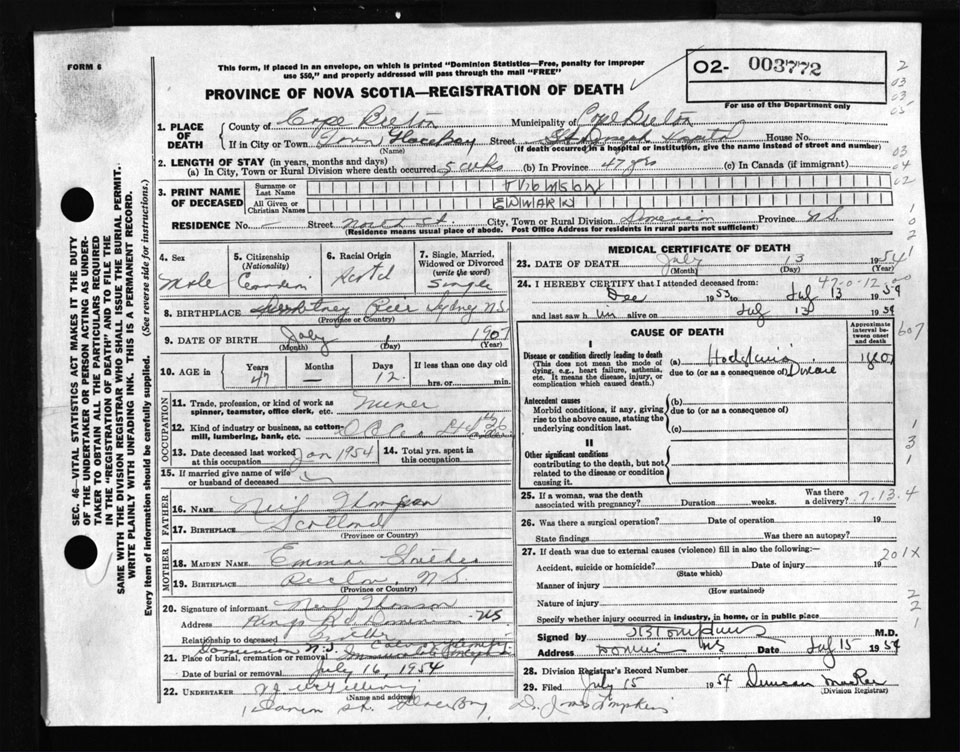 FORM 6
This form, if placed in an envelope, on which is printed "Dominion Statistics—Free, penalty for improper
use $50," and properly addressed will pass through the mail "FREE"
PROVINCE OF NOVA SCOTIA—REGISTRATION OF DEATH
02- 003772
For use of the Department only
1. PLACE OF DEATH
County of Cape Breton Municipality of Cape Breton
If in City or Town Glace Bay Street St Joseph Hospital House No.
(Name) (If death occurred in a hospital or institution, give the name instead of street and number)
2. LENGTH OF STAY (in years, months and days)
(a) In City, Town or Rural Division where death occurred 5 wks (b) In Province 47 yrs (c) In Canada (if immigrant)
3. PRINT NAME OF DECEASED
Surname or Last Name
All Given or Christian Names
RESIDENCE No. — Street North St. City, Town or Rural Division Province N.S.
(Residence means usual place of abode. Post Office Address for residents in rural parts not sufficient)
4. Sex Male
5. Citizenship (Nationality) Canadian
6. Racial Origin Scotch
7. Single, Married, Widowed or Divorced (write the word) Single
8. BIRTHPLACE Sydney N.S.
(Province or Country)
9. DATE OF BIRTH July 1 1907
(Month) (Day) (Year)
10. AGE in Years 47 Months — Days 12 If less than one day old
hrs. or min.
OCCUPATION
11. Trade, profession, or kind of work as
spinner, teamster, office clerk, etc. Miner
12. Kind of industry or business, as cotton-
mill, lumbering, bank, etc.
13. Date deceased last worked
at this occupation Jan 1954
14. Total yrs. spent in
this occupation
15. If married give name of wife
or husband of deceased
FATHER
16. NAME Neil Thompson
17. BIRTHPLACE Scotland
(Province or Country)
MOTHER
18. MAIDEN NAME Emma
19. BIRTHPLACE N.S.
(Province or Country)
20. Signature of informant Neil Thomson
Address Kings Rd Dominion NS
Relationship to deceased Brother
Dominion N.S.
21. Place of burial, cremation or removal
Date of burial or removal July 16, 1954
22. UNDERTAKER
(Name and address)
St. Glace Bay
MEDICAL CERTIFICATE OF DEATH
23. DATE OF DEATH July 13 1954
(Month) (Day) (Year)
47-0-12
24. I HEREBY CERTIFY that I attended deceased from:
Dec 1953 to July 13 1954
and last saw him alive on July 13 1954
CAUSE OF DEATH
Approximate interval between onset and death
I
Disease or condition directly leading to death
(This does not mean the mode of
dying, e.g., heart failure, asthenia,
etc. It means the disease, injury, or
complication which caused death.)
(a) Hodgkins
due to (or as a consequence of) Disease
Antecedent causes
Morbid conditions, if any, giving
rise to the above cause, stating the
underlying condition last.
(b)
due to (or as a consequence of)
(c)
II
Other significant conditions
contributing to the death, but not
related to the disease or condition
causing it.
25. If a woman, was the death
associated with pregnancy? Duration weeks. Was there a delivery?
7.13.4
26. Was there a surgical operation? Date of operation 19
State findings Was there an autopsy?
27. If death was due to external causes (violence) fill in also the following:—
201X
Accident, suicide or homicide? Date of injury 19
(State which)
Manner of injury
(How sustained)
Nature of injury
Specify whether injury occurred in industry, in home, or in public place
Signed by M.D.
Address Date July 15 1954
28. Division Registrar's Record Number
29. Filed July 15 1954 Duncan MacRae
(Division Registrar)
SEC. 46—VITAL STATISTICS ACT MAKES IT THE DUTY
OF THE UNDERTAKER OR PERSON ACTING AS UNDER-
TAKER TO OBTAIN ALL THE PARTICULARS REQUIRED
IN THE "REGISTRATION OF DEATH" AND TO FILE THE
SAME WITH THE DIVISION REGISTRAR WHO SHALL ISSUE THE BURIAL PERMIT.
WRITE PLAINLY WITH UNFADING INK. THIS IS A PERMANENT RECORD.
Every item of information should be carefully supplied. (See reverse side for instructions.)